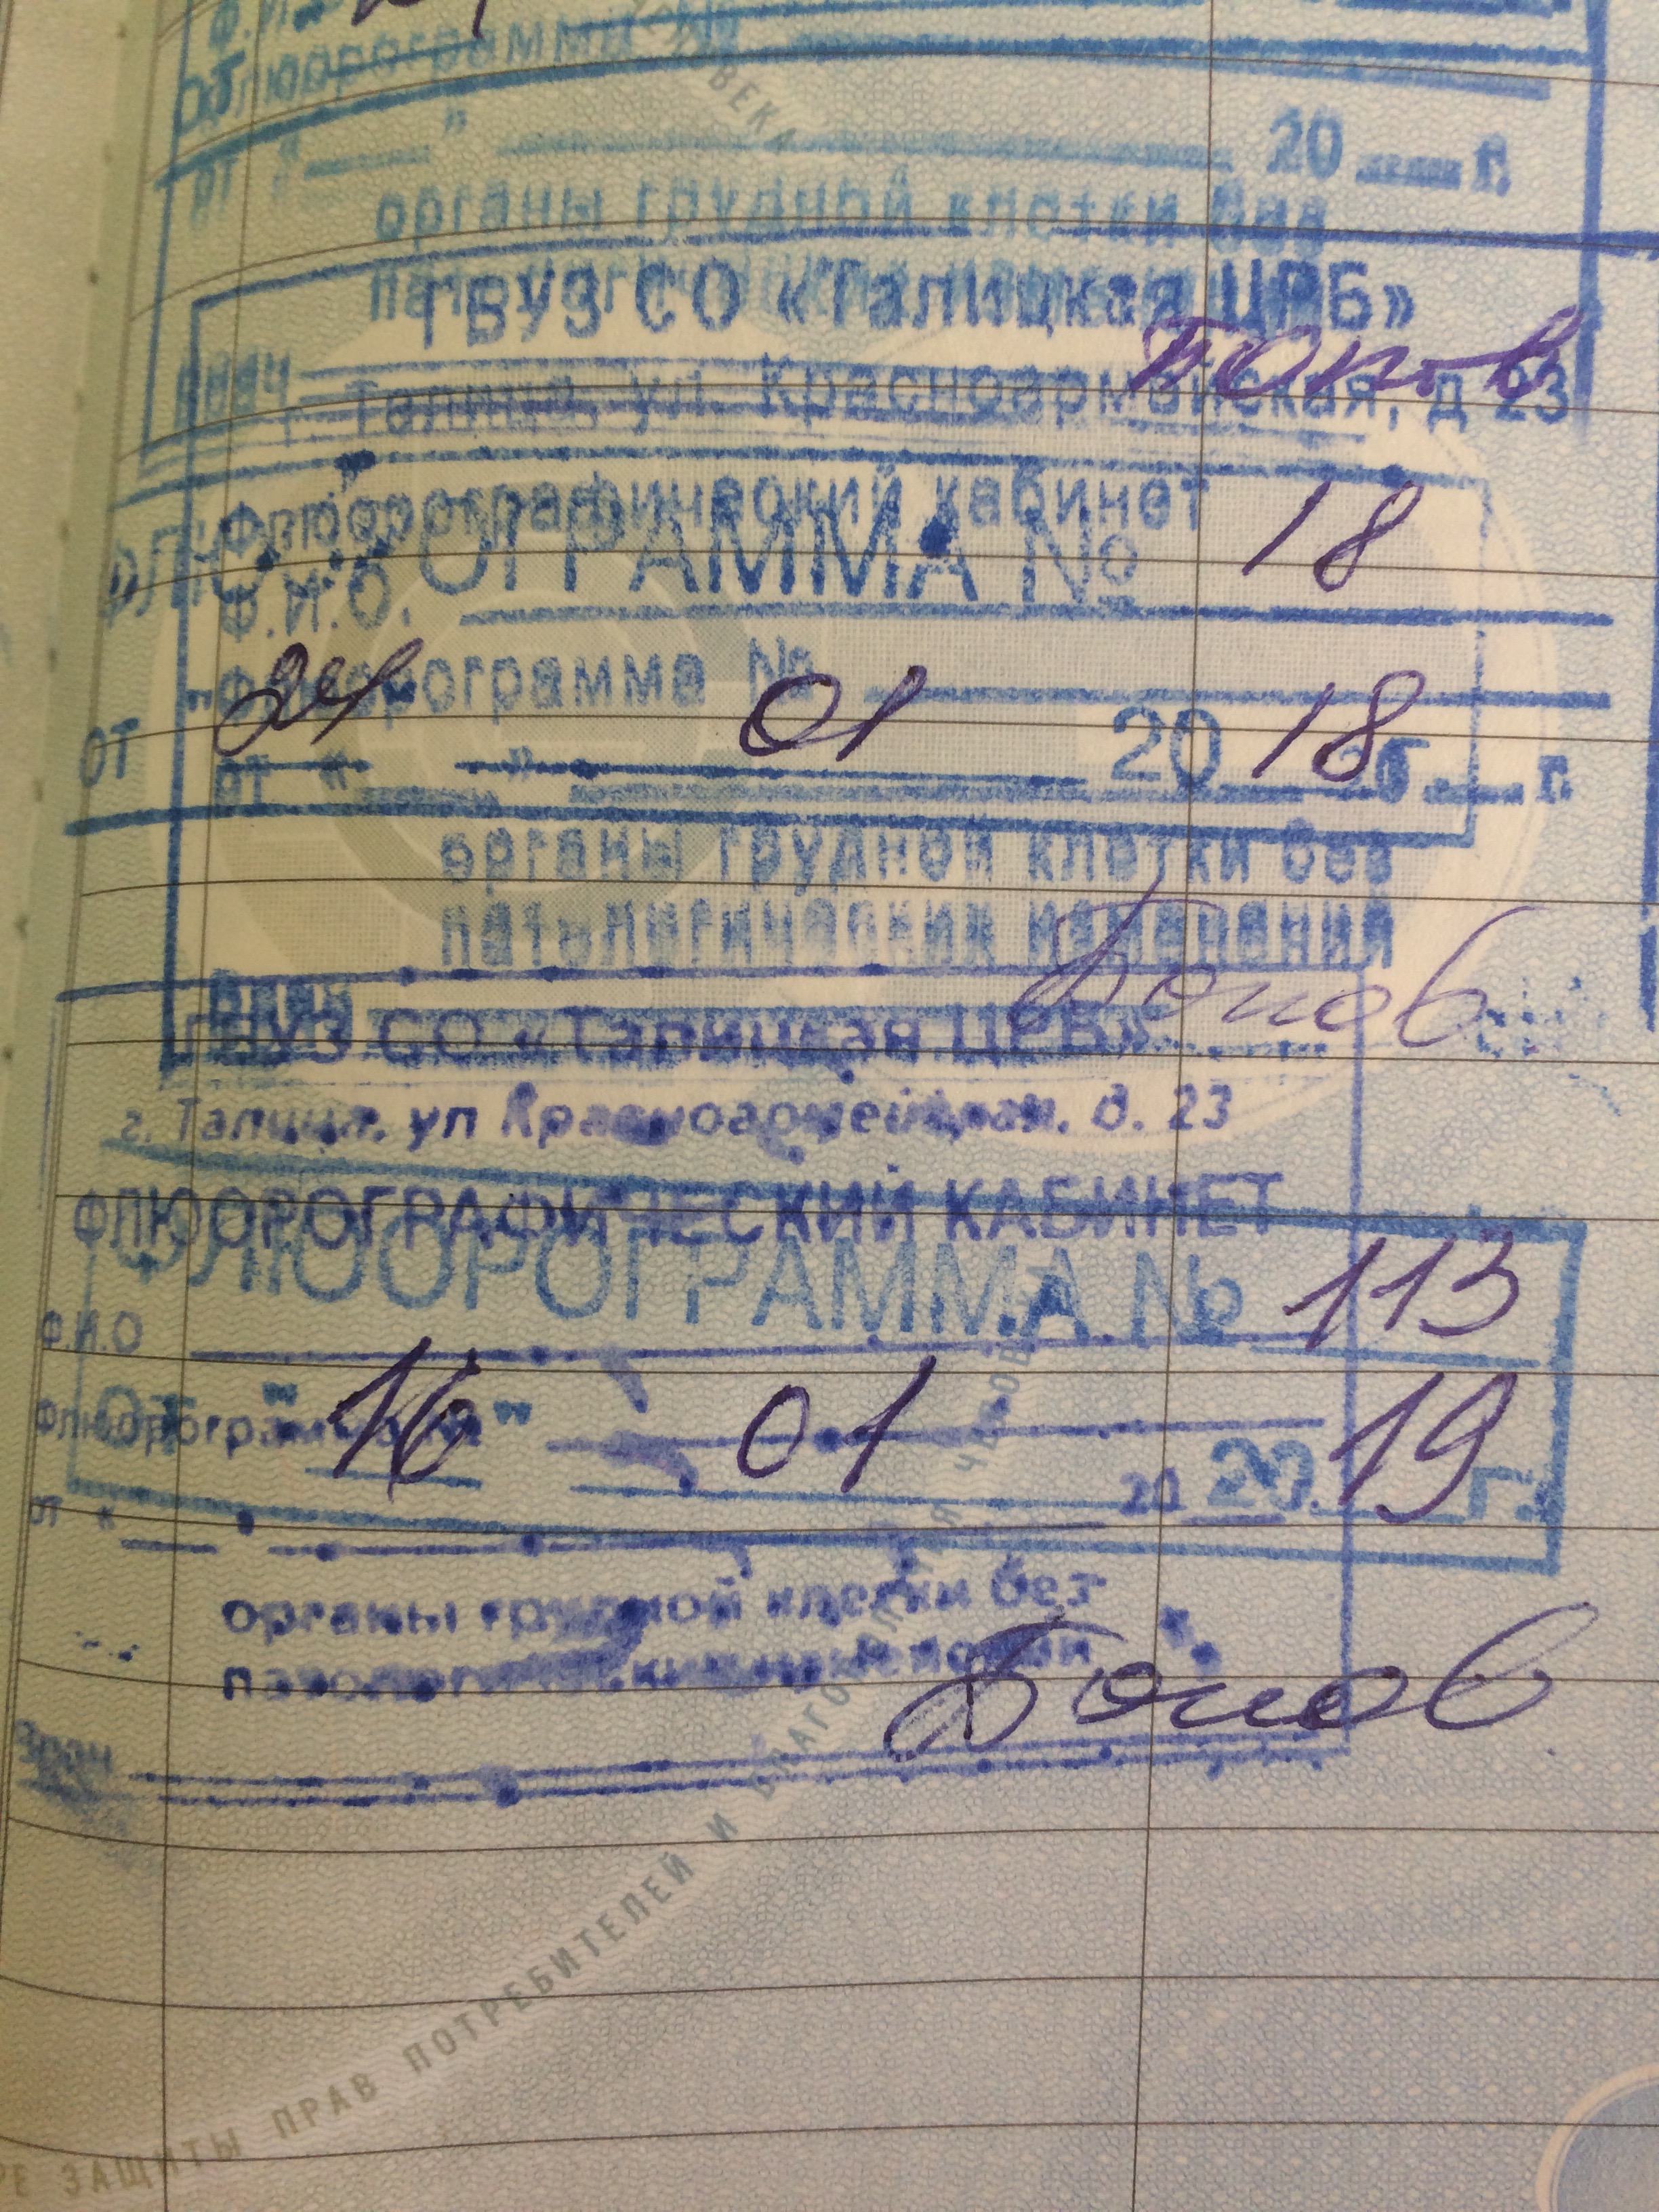 Ф.И.
Флюорограмма №
от « » 20 г.
органы грудной клетки без
ГБУЗ СО «Талицкая ЦРБ»
врач
г. Талица, ул. Красноармейская, д 23
Флюорографический кабинет
ФЛЮОРОГРАММА № 18
Ф.И.О.
Флюорограмма №
от " 24 " 01 20 18 г.
от « » г.
органы грудной клетки без
патологических изменений
врач
ГБУЗ СО «Талицкая ЦРБ»
г. Талица, ул Красноармейская, д. 23
ФЛЮОРОГРАФИЧЕСКИЙ КАБИНЕТ
ФЛЮОРОГРАММА № 113
Ф.И.О
От " 16 " 01 20 19 г.
Флюорограмма №
от « 20
органы грудной клетки без
патологических изменений
Врач
ЗАЩИТЫ ПРАВ ПОТРЕБИТЕЛЕЙ И БЛАГОПОЛУЧИЯ ЧЕЛОВЕКА